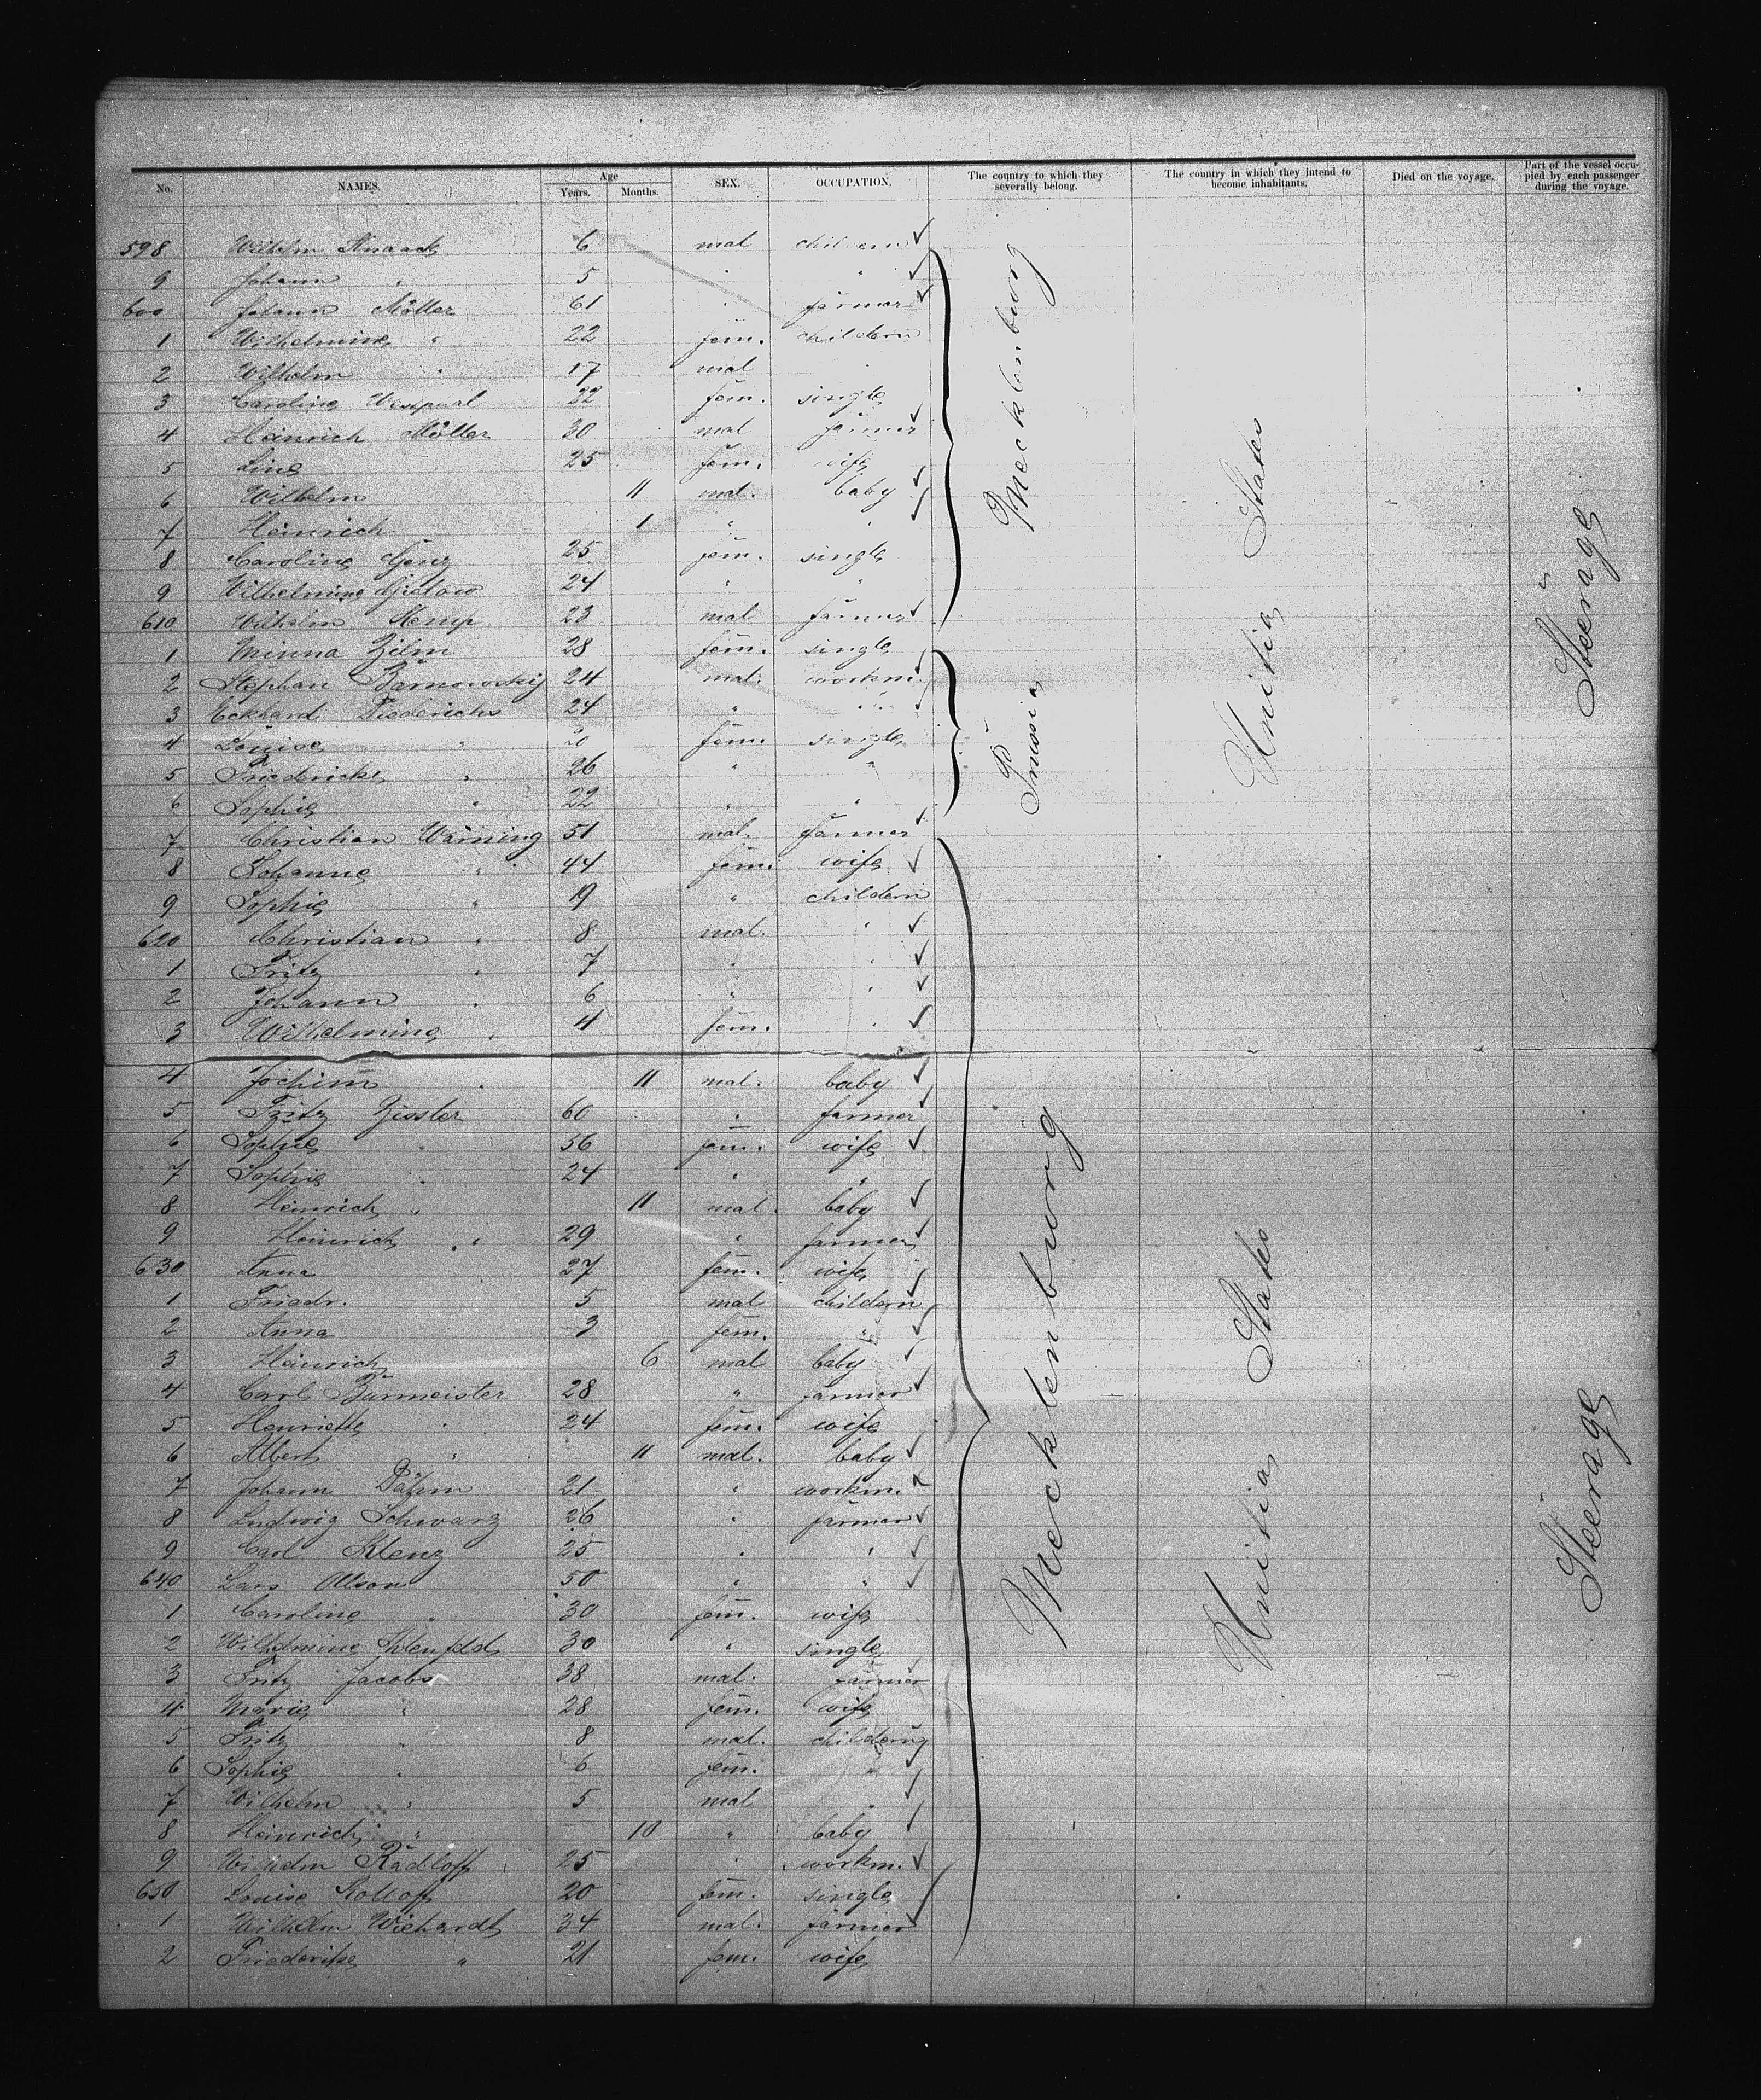 No. NAMES. Age Years. Months. SEX. OCCUPATION. The country to which they severally belong. The country in which they intend to become inhabitants. Died on the voyage. Part of the vessel occupied by each passenger during the voyage.
598 Wilhelm Knaack 6 mal childern
9 Johann " 5 " "
600 Johann Möller 61 " farmer
1 Wilhelmine " 22 fem. childern
2 Wilhelm " 17 mal
3 Caroline Westpual 22 fem. single
4 Heinrich Möller 30 mal farmer
5 Line 25 fem. wife
6 Wilhelm 11 mal. baby
7 Heinrich 1 " "
8 Caroline 25 fem. single
9 Wilhelmine 24 " "
610 Wilhelm Kemp 23 mal farmer
Mecklenburg
1 Minna Zilm 28 fem. single
2 Stephan Barnowsky 24 mal. workm.
3 Eckhard Diederichs 24 " "
4 Louise " 20 fem. single
5 Friedericke " 26 " "
6 Sophie " 22 " "
Prussia
7 Christian Warning 51 mal. farmer
8 Johanne " 44 fem. wife
9 Sophie " 19 " childern
620 Christian " 8 mal. "
1 Fritz " 7 " "
2 Johann " 6 " "
3 Wilhelmine " 4 fem. "
4 Jochim " 11 mal. baby
5 Fritz Zissler 60 " farmer
6 Sophie " 56 fem. wife
7 Sophie " 24 " "
8 Heinrich " 11 mal. baby
9 Heinrich " 29 " farmer
630 Anna 27 fem. wife
1 Friedr. 5 mal childern
2 Anna 3 fem. "
3 Heinrich 6 mal baby
4 Carl Burmeister 28 " farmer
5 Henriette " 24 fem. wife
6 Albert " 11 mal. baby
7 Johann 21 " workm.
8 Ludwig Schwarz 26 " farmer
9 Carl Klenz 25 " "
640 Lars Ollson 50 " "
1 Caroline " 30 fem. wife
2 Wilhelmine 30 " single
3 Fritz Jacobs 38 mal. farmer
4 Marie " 28 fem. wife
5 Fritz " 8 mal. childern
6 Sophie " 6 fem. "
7 Wilhelm " 5 mal "
8 Heinrich " 10 " baby
9 Wilhelm Radloff 25 " workm.
650 Louise 20 fem. single
1 Wilhelm Wichardt 34 mal. farmer
2 Friederike " 21 fem. wife
Mecklenburg
Unitia States
Unitia States
Steerage
Steerage